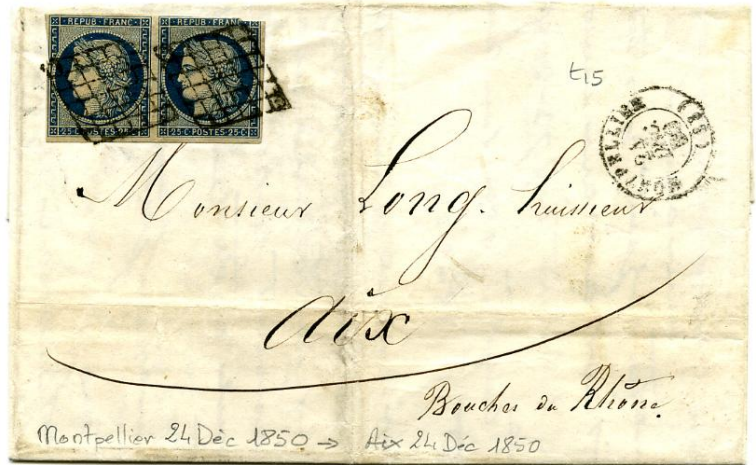 REPUB·FRANC· REPUB·FRANC·
25·C·POSTES·25·C· 25·C·POSTES·25·C·
t15
MONTPELLIER (33)
24
Monsieur Long. huissier
Aix
Bouches du Rhône.
Montpellier 24 Déc 1850 → Aix 24 Déc 1850